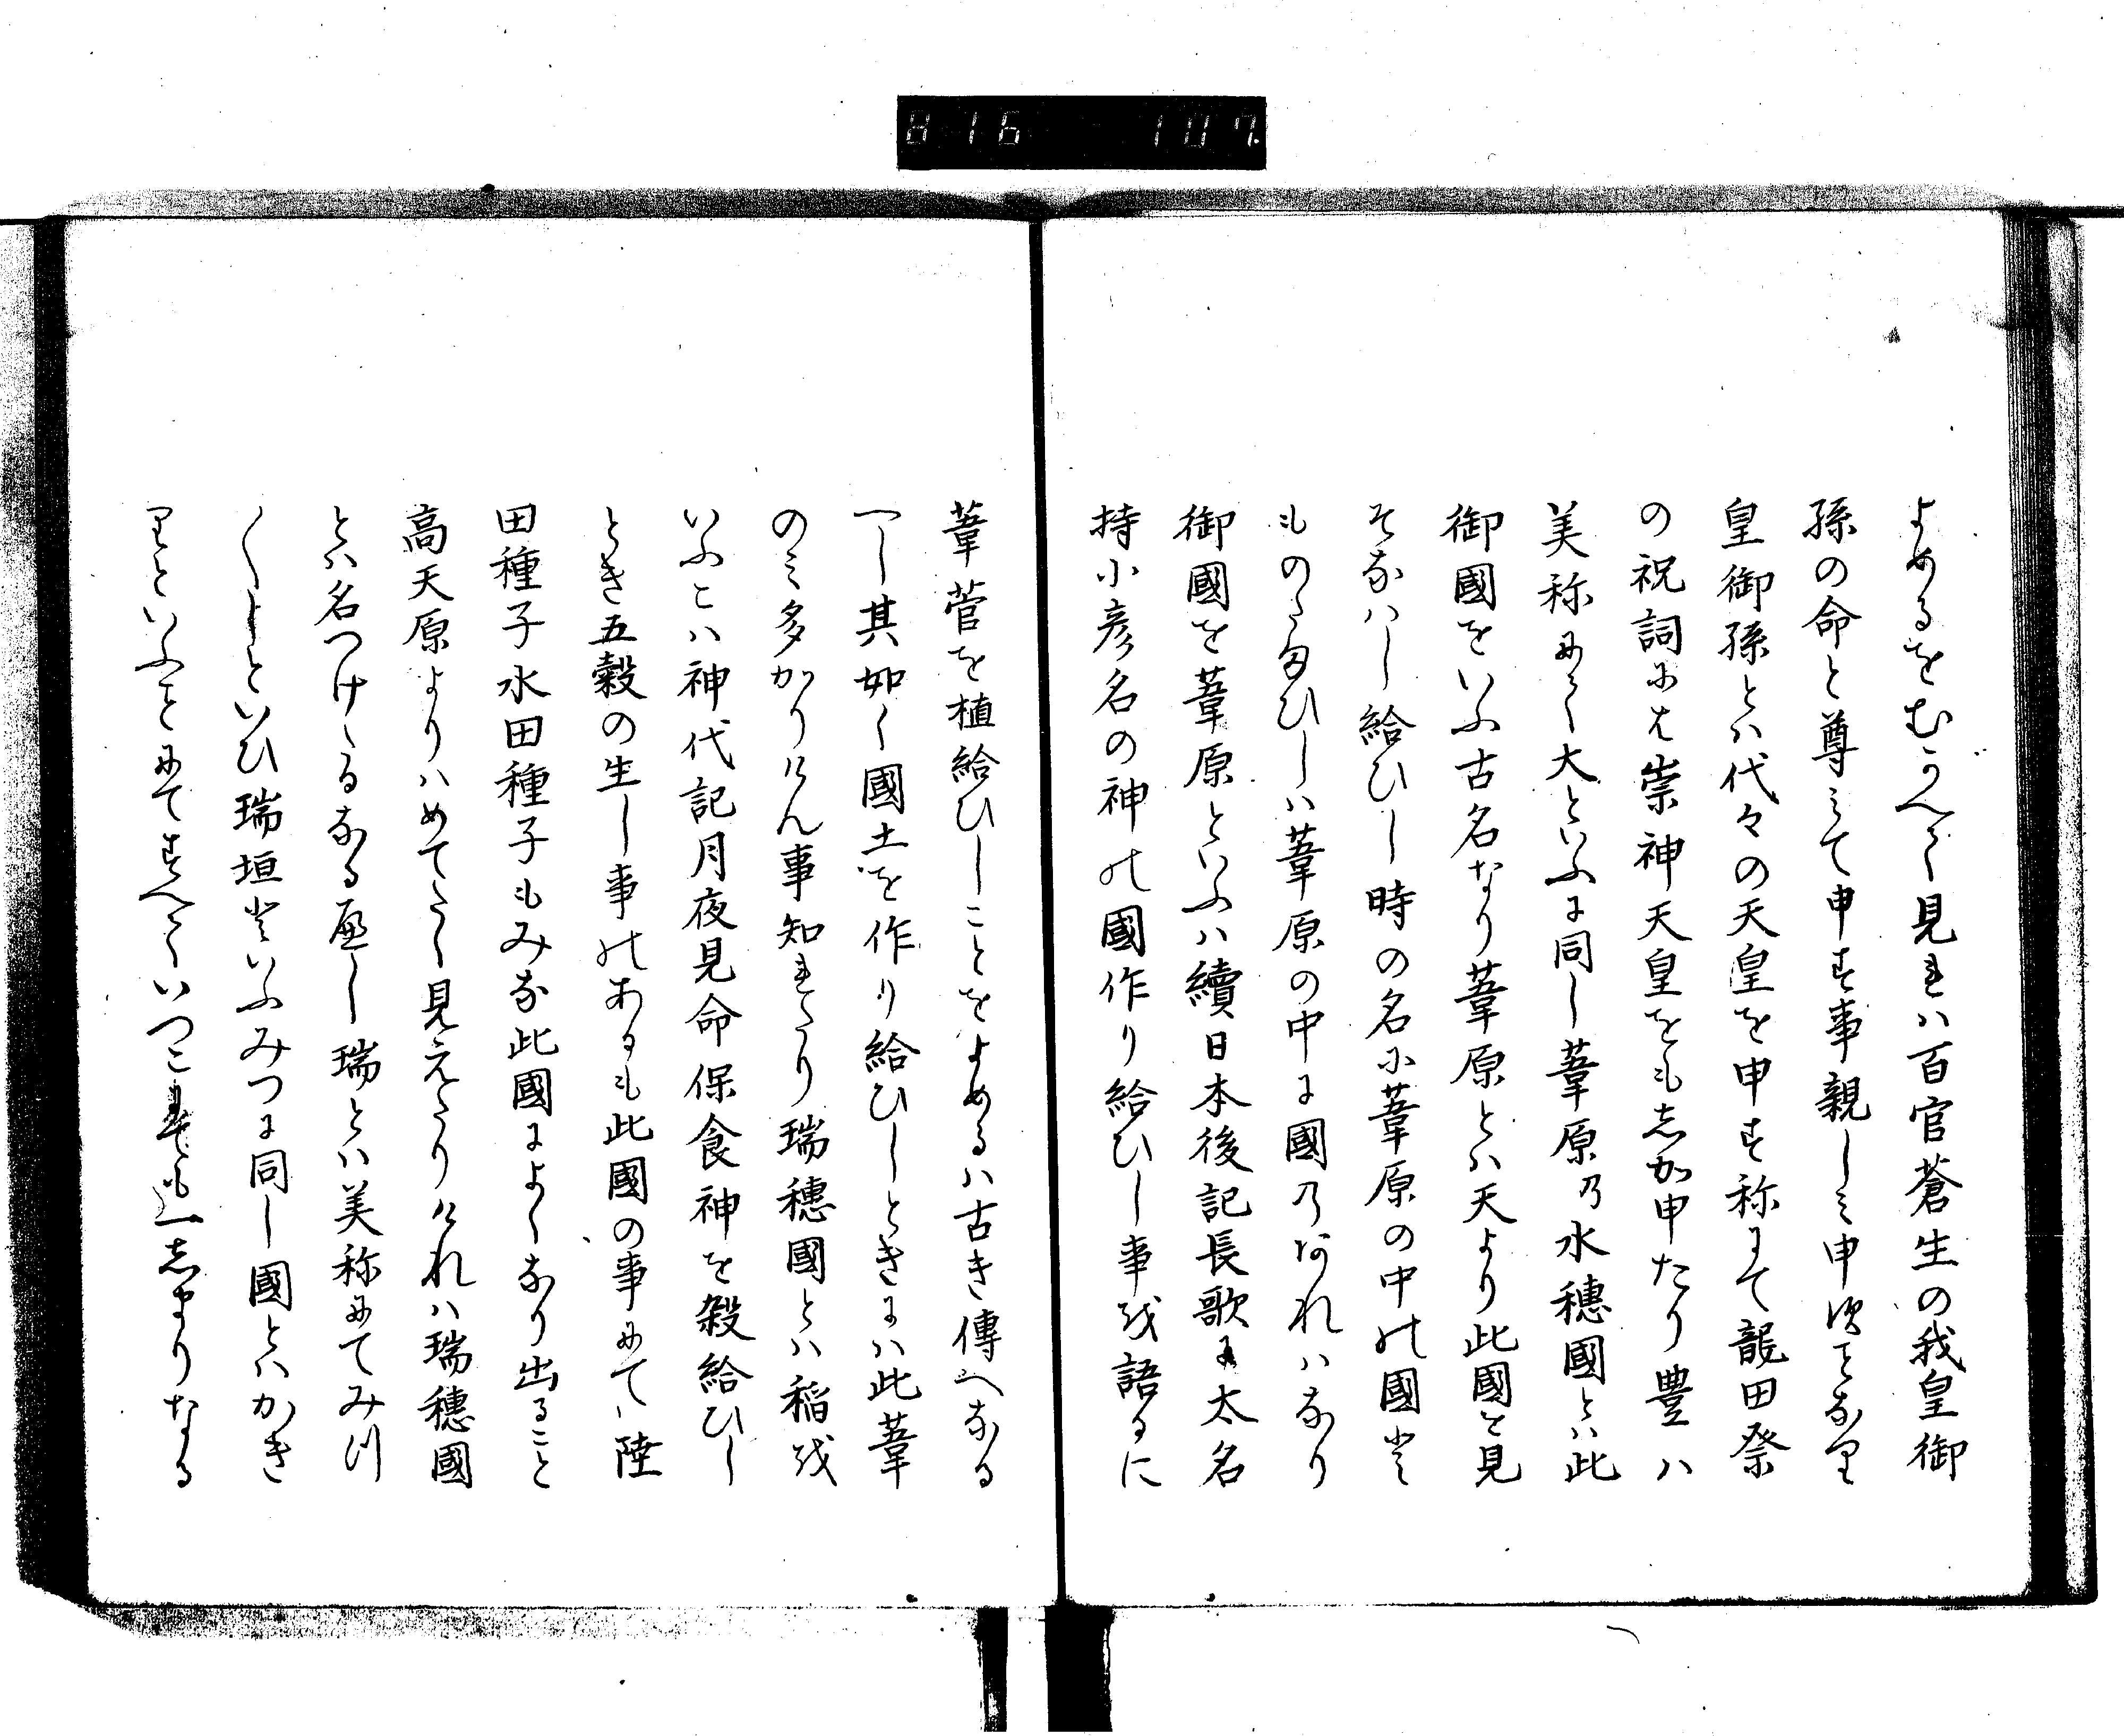 816 107.
よめるをむかへて見れハ百官蒼生の我皇御
孫の命と尊みて申す事親しミ申すことなり
皇御孫とハ代々の天皇を申す称にて龍田祭
の祝詞には崇神天皇をも志か申たり豊ハ
美称にて大といふに同し葦原乃水穂國とハ此
御國をいふ古名なり葦原とハ天より此國を見
そなハし給ひし時の名に葦原の中の國と
ものたまひしハ葦原の中に國乃あれハなり
御國を葦原といふハ續日本後記長歌に太名
持小彦名の神の國作り給ひし事を語るに
葦菅を植給ひしことをよめるハ古き傳へなる
へし其如く國土を作り給ひしときにハ此葦
のミ多かりけん事知れたり瑞穂國とハ稲を
いふこハ神代記月夜見命保食神を殺給ひし
とき五穀の生し事のあるも此國の事にて陸
田種子水田種子もみな此國によくなり出ること
高天原よりハめてたく見えたりけれハ瑞穂國
とハ名つけたるなる遍し瑞とハ美称にてみつ
くしといひ瑞垣といふみつに同し國とハかき
りといふことにてすへていつこまても一志まりなる